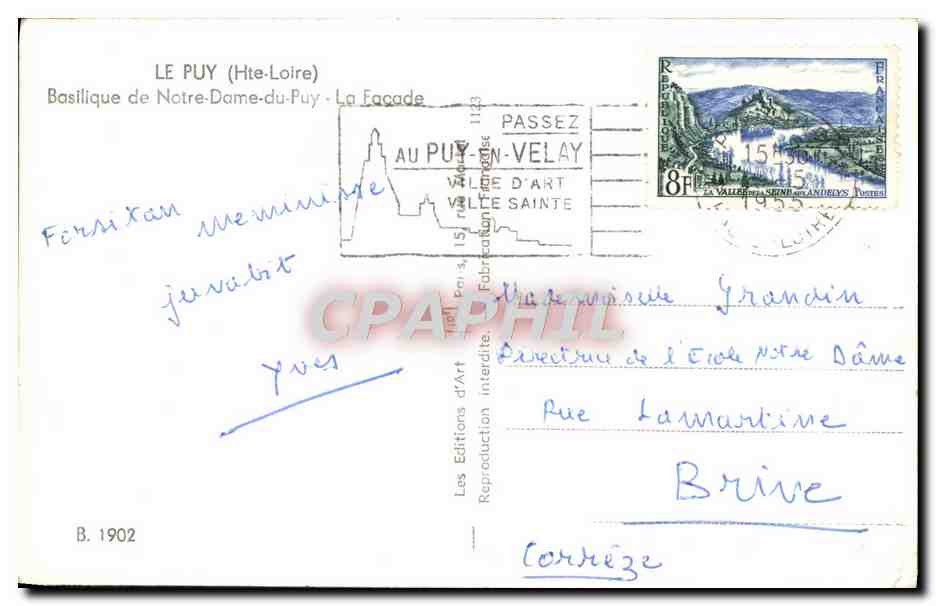 LE PUY (Hte-Loire)
Basilique de Notre-Dame-du-Puy - La Façade
PASSEZ
AU PUY-EN-VELAY
VILLE D'ART
VILLE SAINTE
REPUBLIQUE
FRANÇAISE
8F
LA VALLEE DE LA SEINE AUX ANDELYS POSTES
15H30
1955
LOIRE
Forsitan meminisse
juvabit
Yves
B. 1902
Les Editions d'Art Paris, 15, rue
Reproduction interdite. Fabrication Française 1123
CPAPHIL
Mademoiselle Grandin
Directrice de l'Ecole Notre Dâme
Rue Lamartine
Brive
Corrèze